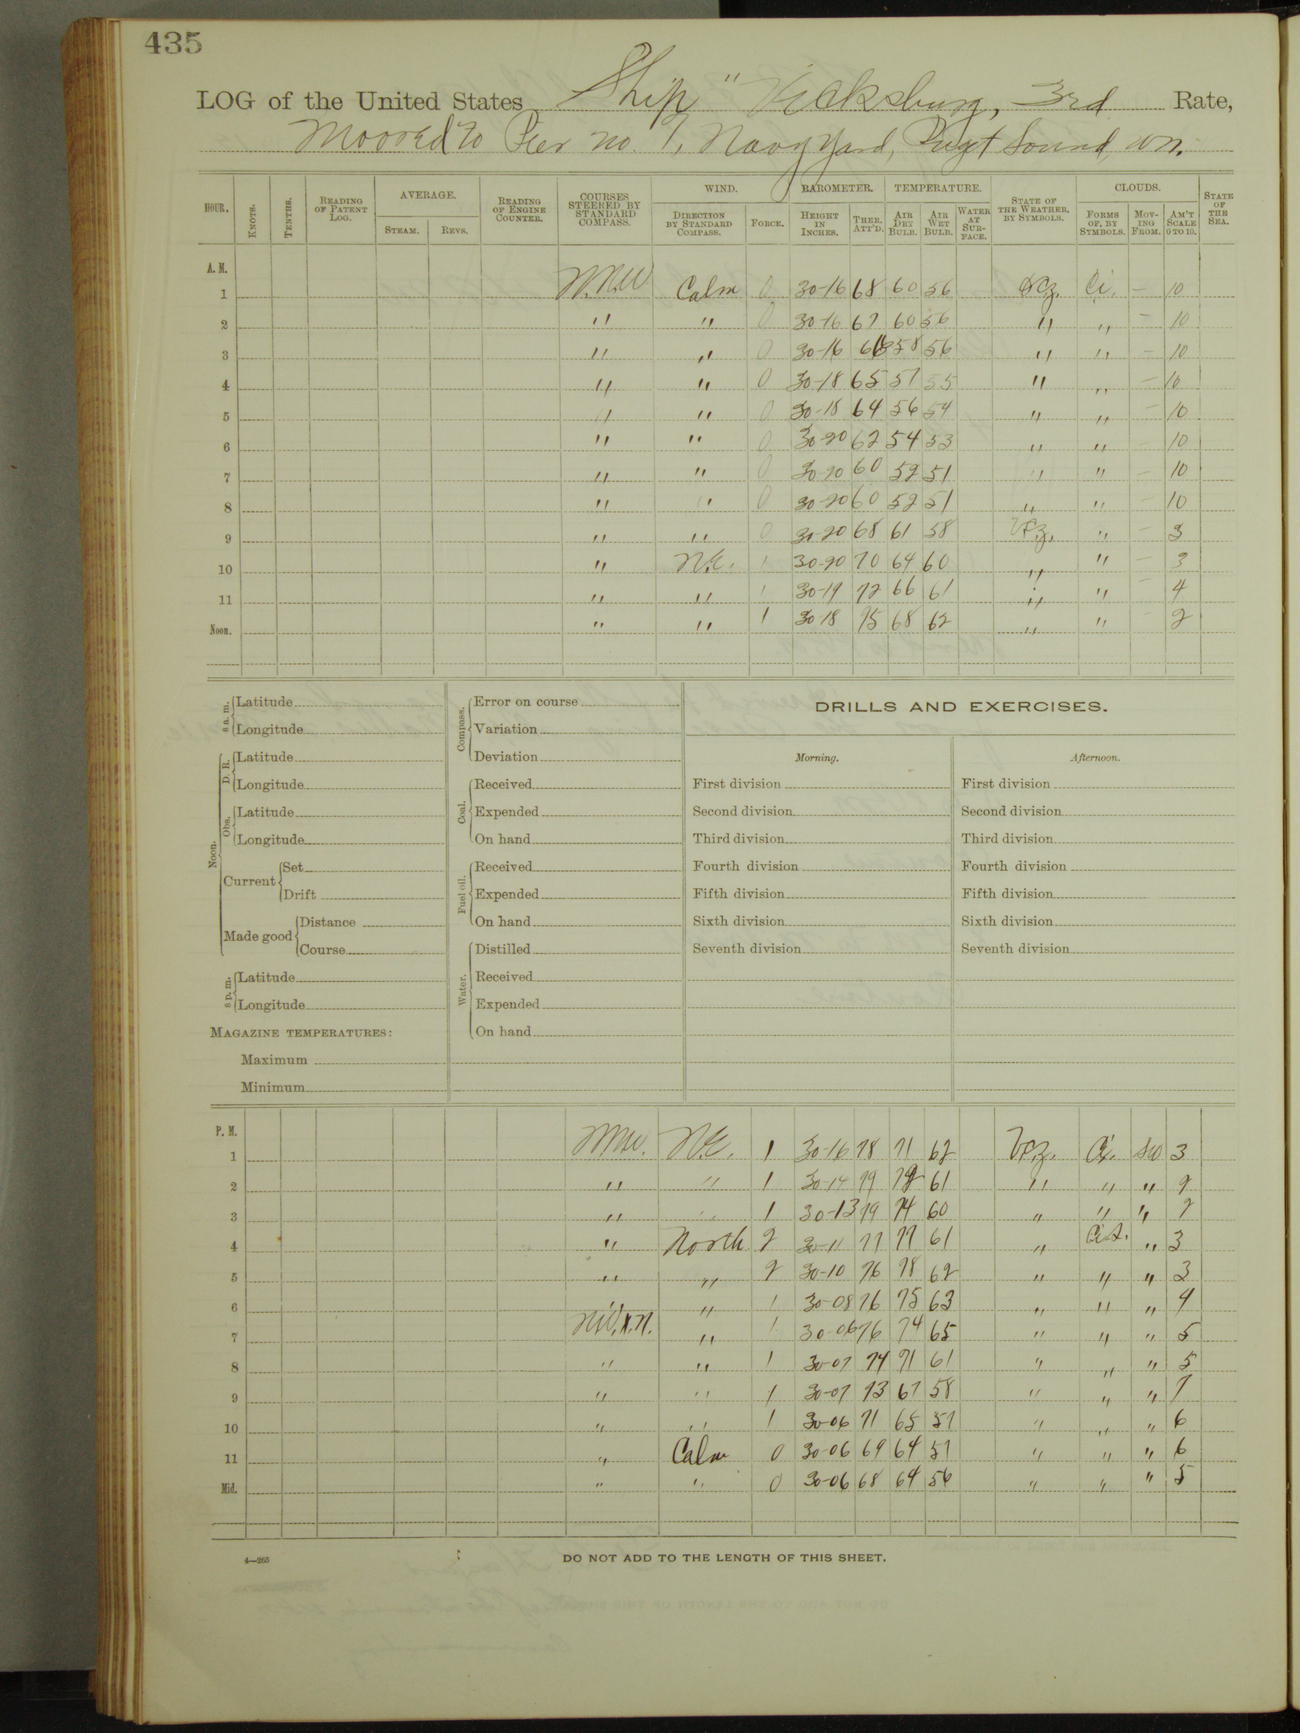 435
LOG of the United States Ship "Vicksburg, 3rd Rate,
Moored to Pier no. 7, Navy Yard, Puget Sound Wn.
HOUR. KNOTS. TENTHS. READING OF PATENT LOG. AVERAGE. STEAM. REVS. READING OF ENGINE COUNTER. COURSES STEERED BY STANDARD COMPASS. WIND. DIRECTION BY STANDARD COMPASS. FORCE. BAROMETER. HEIGHT IN INCHES. THER. ATT'D. TEMPERATURE. AIR DRY BULB. AIR WET BULB. WATER AT SURFACE. STATE OF THE WEATHER, BY SYMBOLS. CLOUDS. FORMS OF, BY SYMBOLS. MOVING FROM. AM'T SCALE 0 TO 10. STATE OF THE SEA.
A. M.
1 W.N.W Calm 0 30-16 68 60 56 Ci. — 10
2 " " 0 30-16 67 60 56 " " — 10
3 " " 0 30-16 66 58 56 " " — 10
4 " " 0 30-18 65 57 55 " " — 10
5 " " 0 30-18 64 56 54 " " — 10
6 " " 0 30-20 62 54 53 " " — 10
7 " " 0 30-20 60 52 51 " " — 10
8 " " 0 30-20 60 52 51 " " — 10
9 " " 0 30-20 68 61 58 " — 3
10 " N.E. 1 30-20 70 64 60 " " — 3
11 " " 1 30-19 72 66 61 " " — 4
Noon. " " 1 30 18 75 68 62 " " — 2
8 a. m. Latitude
Longitude
Noon. D. R. Latitude
Longitude
Obs. Latitude
Longitude
Current Set
Drift
Made good Distance
Course
8 p. m. Latitude
Longitude
MAGAZINE TEMPERATURES:
Maximum
Minimum
Compass. Error on course
Variation
Deviation
Coal. Received
Expended
On hand
Fuel oil. Received
Expended
On hand
Water. Distilled
Received
Expended
On hand
DRILLS AND EXERCISES.
Morning. Afternoon.
First division First division
Second division Second division
Third division Third division
Fourth division Fourth division
Fifth division Fifth division
Sixth division Sixth division
Seventh division Seventh division
P. M.
1 WNW. N.E. 1 30-16 78 71 62 Ci. SW 3
2 " " 1 30-14 79 72 61 " " " 2
3 " " 1 30-13 79 74 60 " " " 2
4 " North 2 30-11 77 77 61 " Ci.S. " 3
5 " " 2 30-10 76 78 62 " " " 3
6 " " 1 30-08 76 75 63 " " " 4
7 NW.x.N. " 1 30-06 76 74 65 " " " 5
8 " " 1 30-07 74 71 61 " " " 5
9 " " 1 30-07 73 67 58 " " " 7
10 " " 1 30-06 71 65 57 " " " 6
11 " Calm 0 30-06 69 64 57 " " " 6
Mid. " " 0 30-06 68 64 56 " " " 5
4—265
DO NOT ADD TO THE LENGTH OF THIS SHEET.